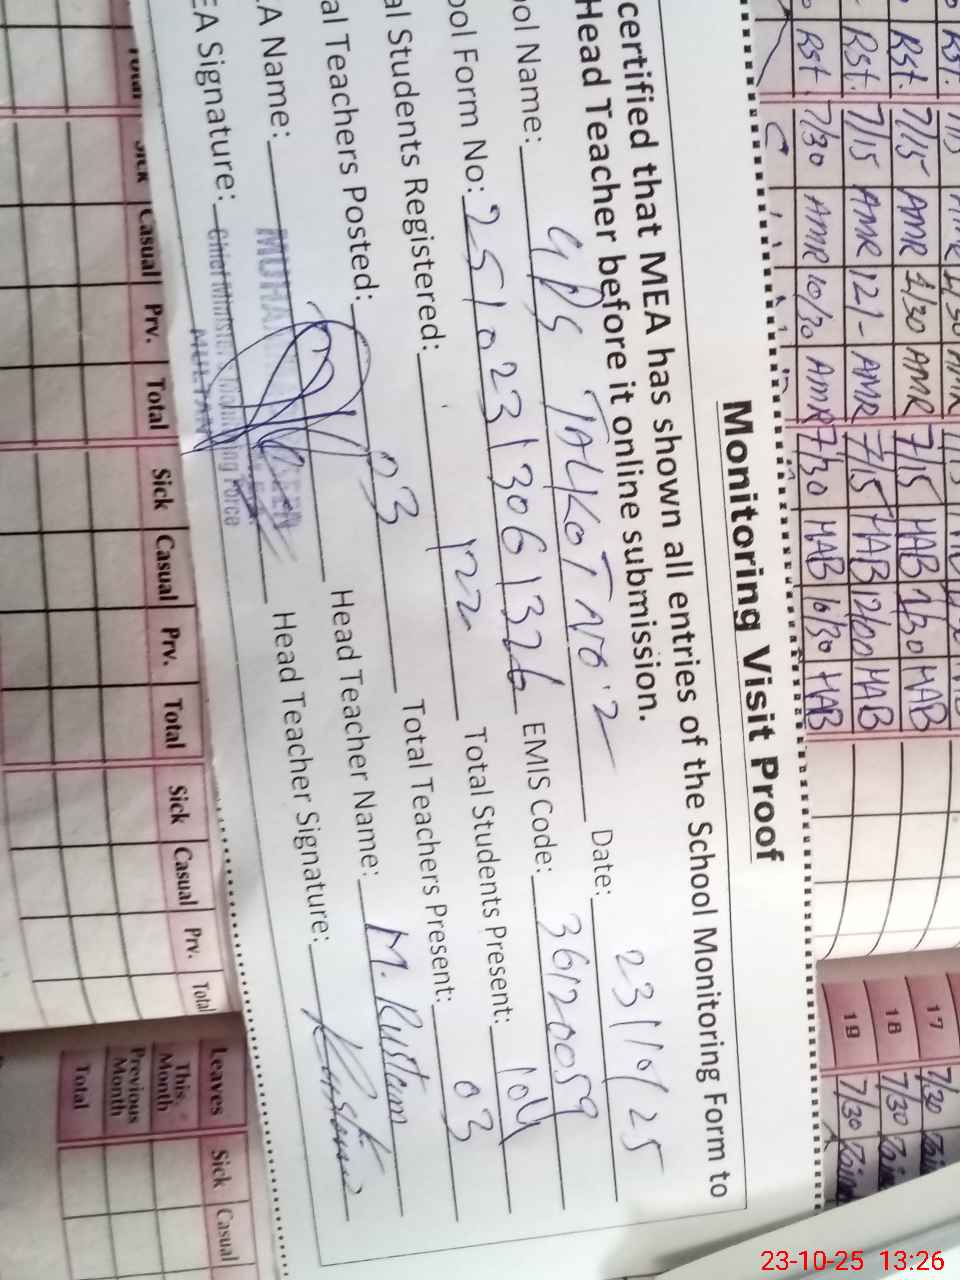 Monitoring Visit Proof
certified that MEA has shown all entries of the School Monitoring Form to
Head Teacher before it online submission.
ool Name: GPS TALKOT NO 2 Date: 23/10/25
ool Form No: 25102313061326 EMIS Code: 36120059
al Students Registered: 122 Total Students Present: 104
al Teachers Posted: 03 Total Teachers Present: 03
A Name: Head Teacher Name: M. Rustam
EA Signature: Head Teacher Signature:
Chief Minister Monitoring Force
MULTAN
Rst. 7/15 AMR 1/30 AMR 7/15 HAB 1/30 HAB
Rst. 7/15 AMR 12/- AMR 7/15 HAB 12/00 HAB
Rst. 7/30 AMR 10/30 AMR 7/30 HAB 10/30 HAB
17 7/30
18 7/30
19 7/30
Total Sick Casual Prv. Total Sick Casual Prv. Total Sick Casual Prv. Total
Leaves Sick Casual
This Month
Previous Month
Total
23-10-25 13:26